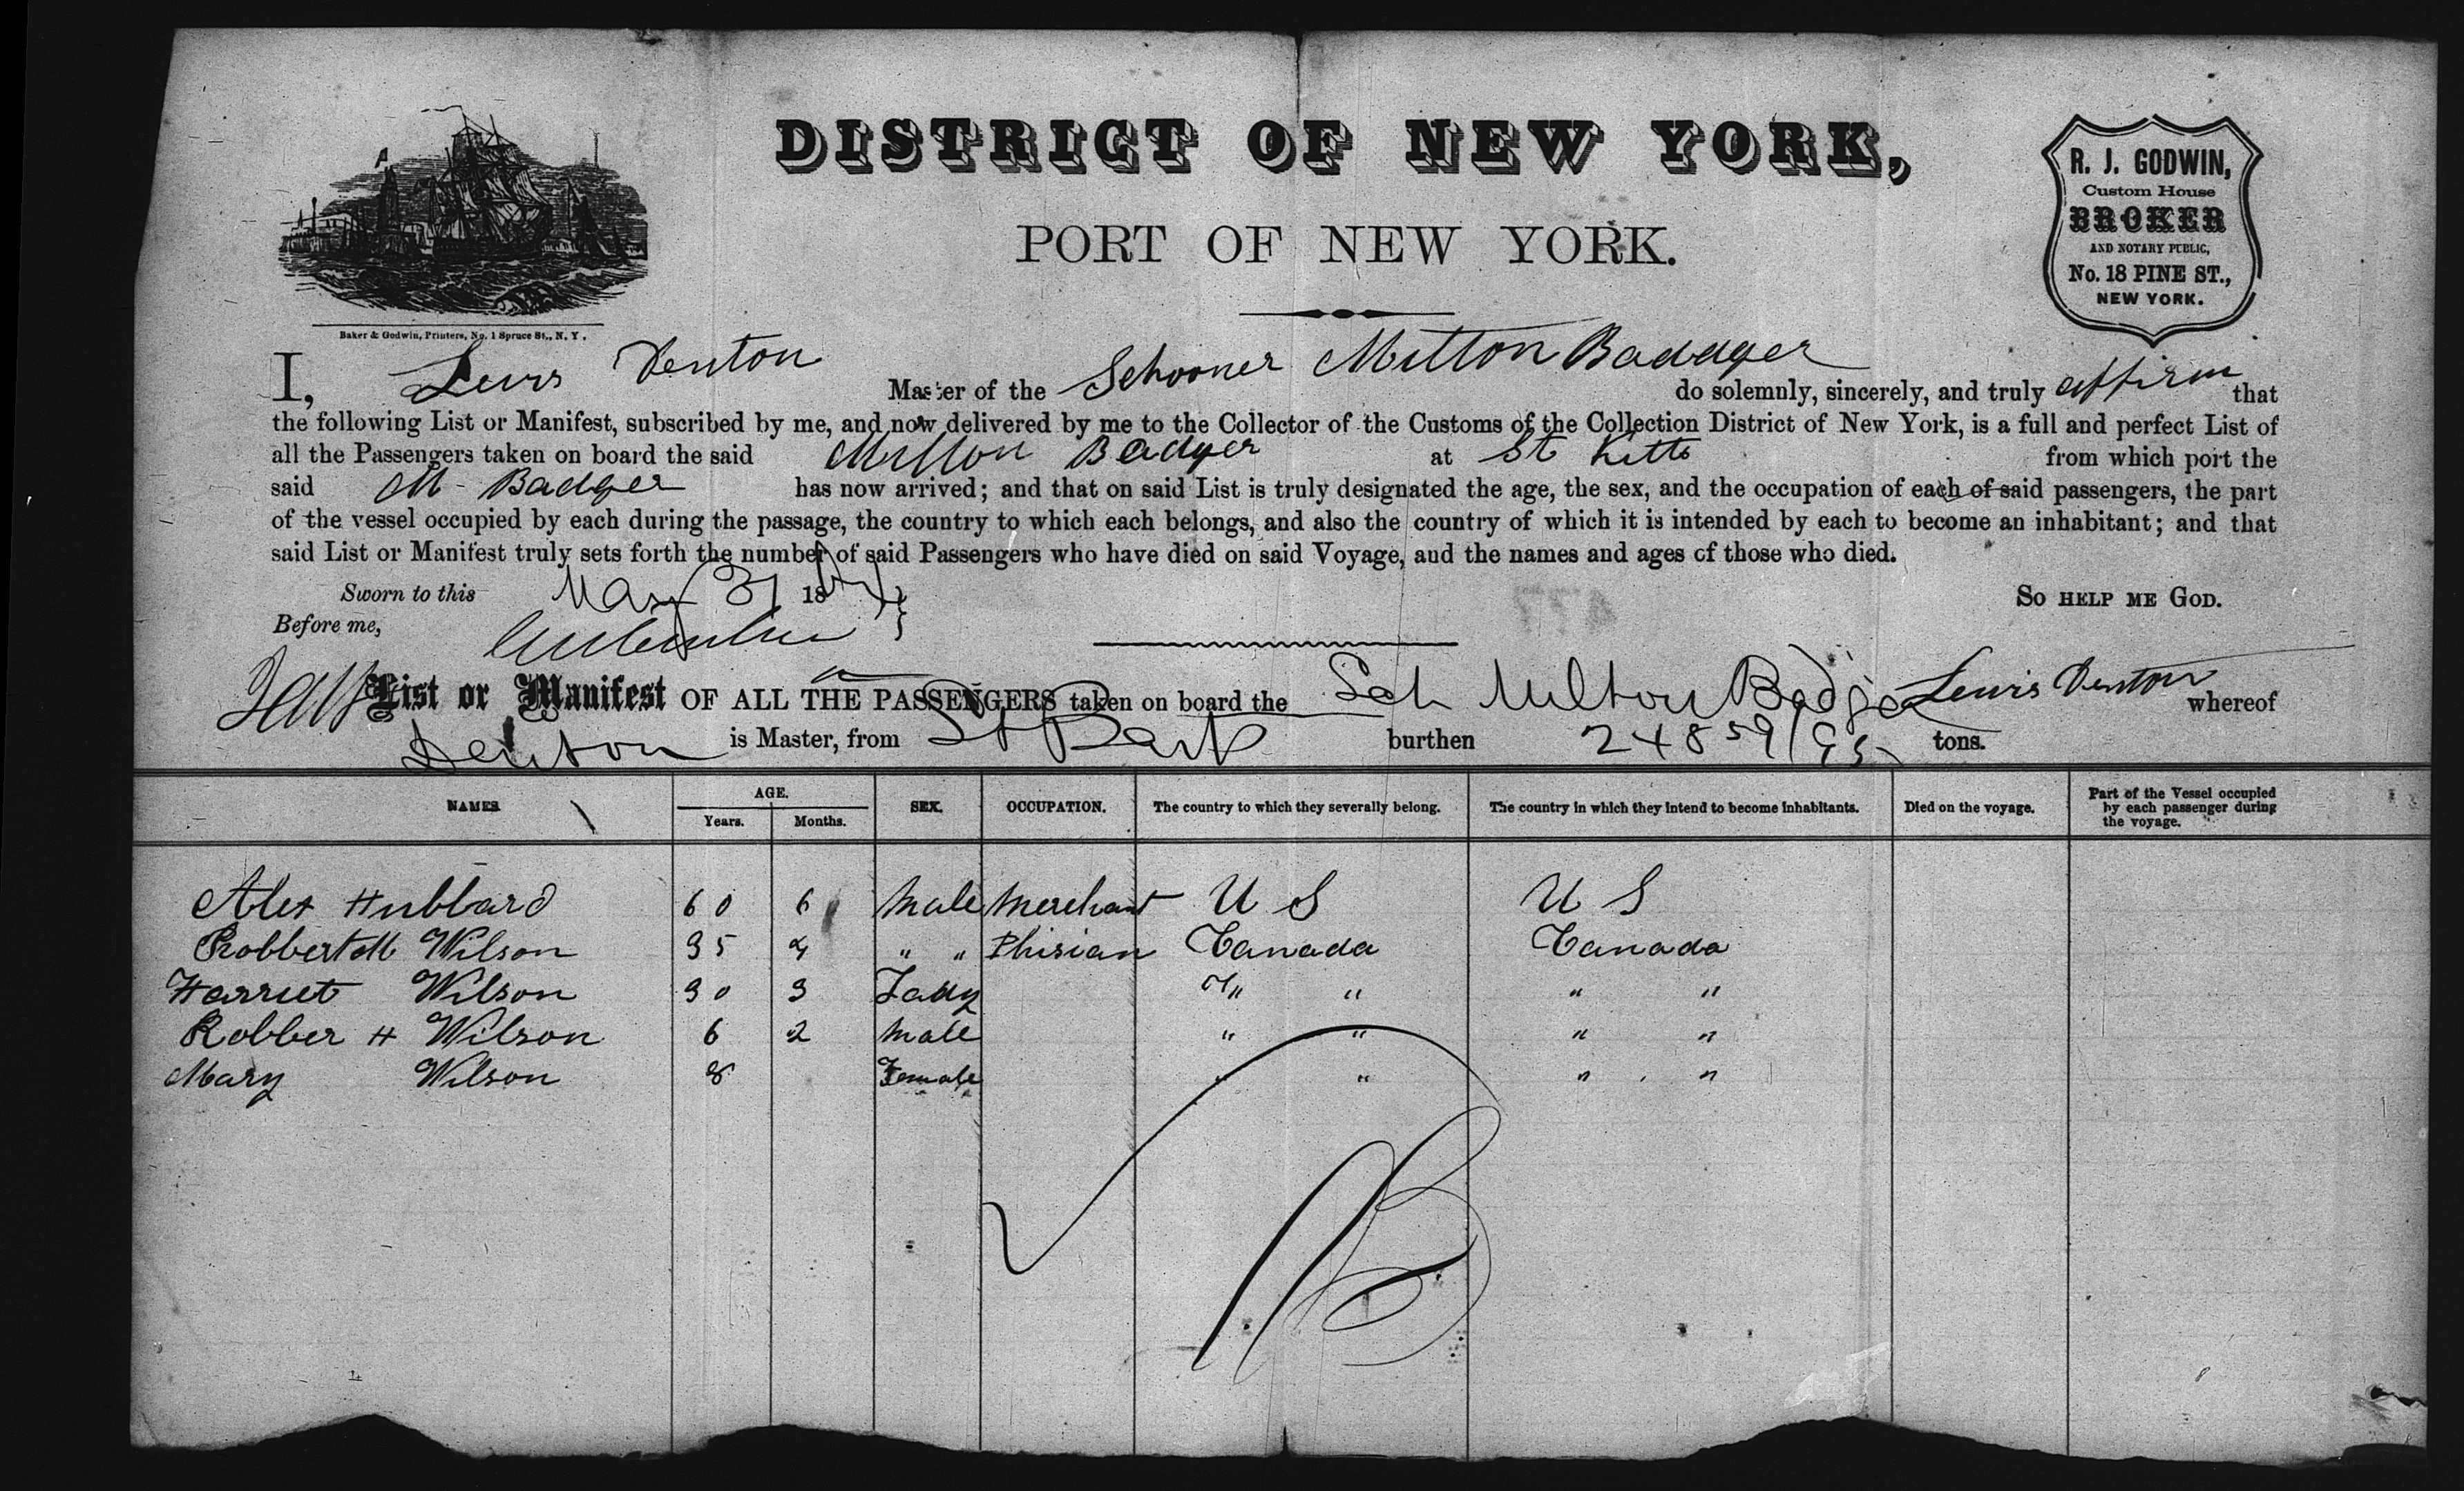 DISTRICT OF NEW YORK,
PORT OF NEW YORK.
R. J. GODWIN,
Custom House
BROKER
AND NOTARY PUBLIC,
No. 18 PINE ST.,
NEW YORK.
Baker & Godwin, Printers, No. 1 Spruce St., N. Y.
I, Lewis Denton Master of the Schooner Milton Baddger do solemnly, sincerely, and truly affirm that
the following List or Manifest, subscribed by me, and now delivered by me to the Collector of the Customs of the Collection District of New York, is a full and perfect List of
all the Passengers taken on board the said Milton Badger at St Kitts from which port the
said M Badger has now arrived; and that on said List is truly designated the age, the sex, and the occupation of each of said passengers, the part
of the vessel occupied by each during the passage, the country to which each belongs, and also the country of which it is intended by each to become an inhabitant; and that
said List or Manifest truly sets forth the number of said Passengers who have died on said Voyage, and the names and ages of those who died.
Sworn to this May 31 18 SO HELP ME GOD.
Before me,
Lewis Denton
List or Manifest OF ALL THE PASSENGERS taken on board the Sch Milton Badger whereof
Denton is Master, from St Bart burthen 248 59/95 tons.
NAMES AGE. SEX. OCCUPATION. The country to which they severally belong. The country in which they intend to become inhabitants. Died on the voyage. Part of the Vessel occupied by each passenger during the voyage.
Years. Months.
Alex Hubbard 60 6 Male Merchant U S U S
Robbert M Wilson 35 4 " " Phisian Canada Canada
Harriet Wilson 30 3 Lady " " " "
Robber H Wilson 6 2 Male " " " "
Mary Wilson 8 Female " " " "